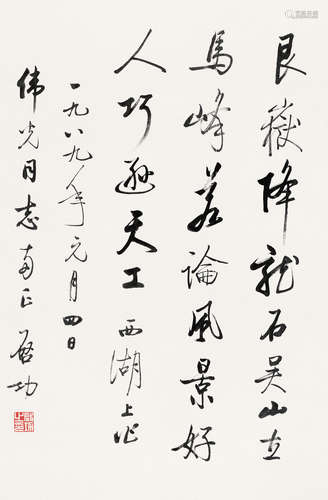 艮嶽降龍石吴山立
馬峰若論風景好
人巧遜天工 西湖上作
一九八九年元月四日
伟光同志正 启功